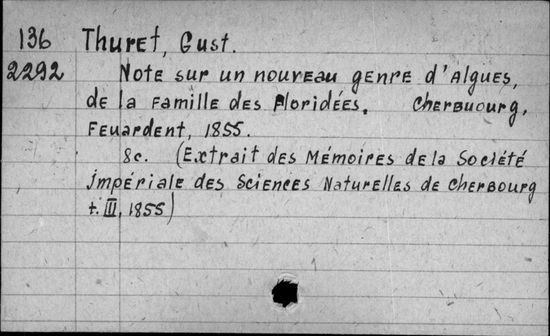 136 Thuret, Gust.
2292 Note sur un nouveau genre d'Algues,
de la famille des Floridées. Cherbuourg,
Feuardent, 1855.
8c. (Extrait des Mémoires de la Société
Impériale des Sciences Naturelles de Cherbourg
t. III, 1855)